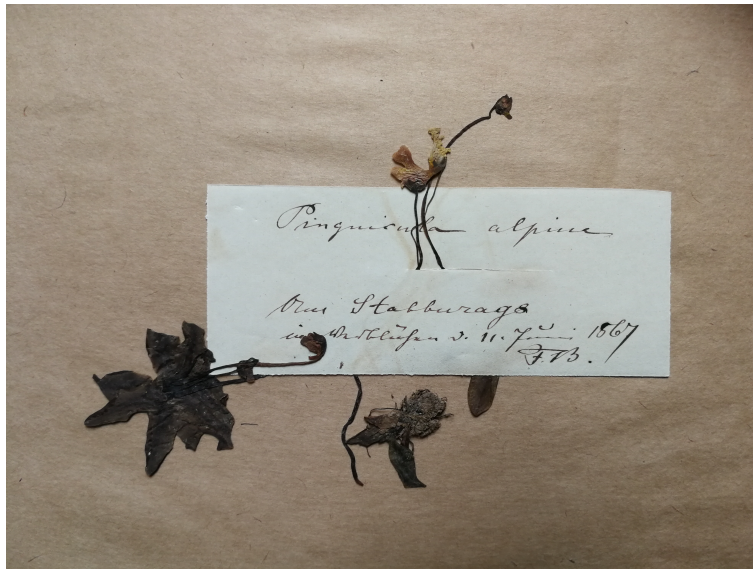 Pinguicula alpina
Am Stabburags
im Verblühen d. 11. Juni 1867
F. B.